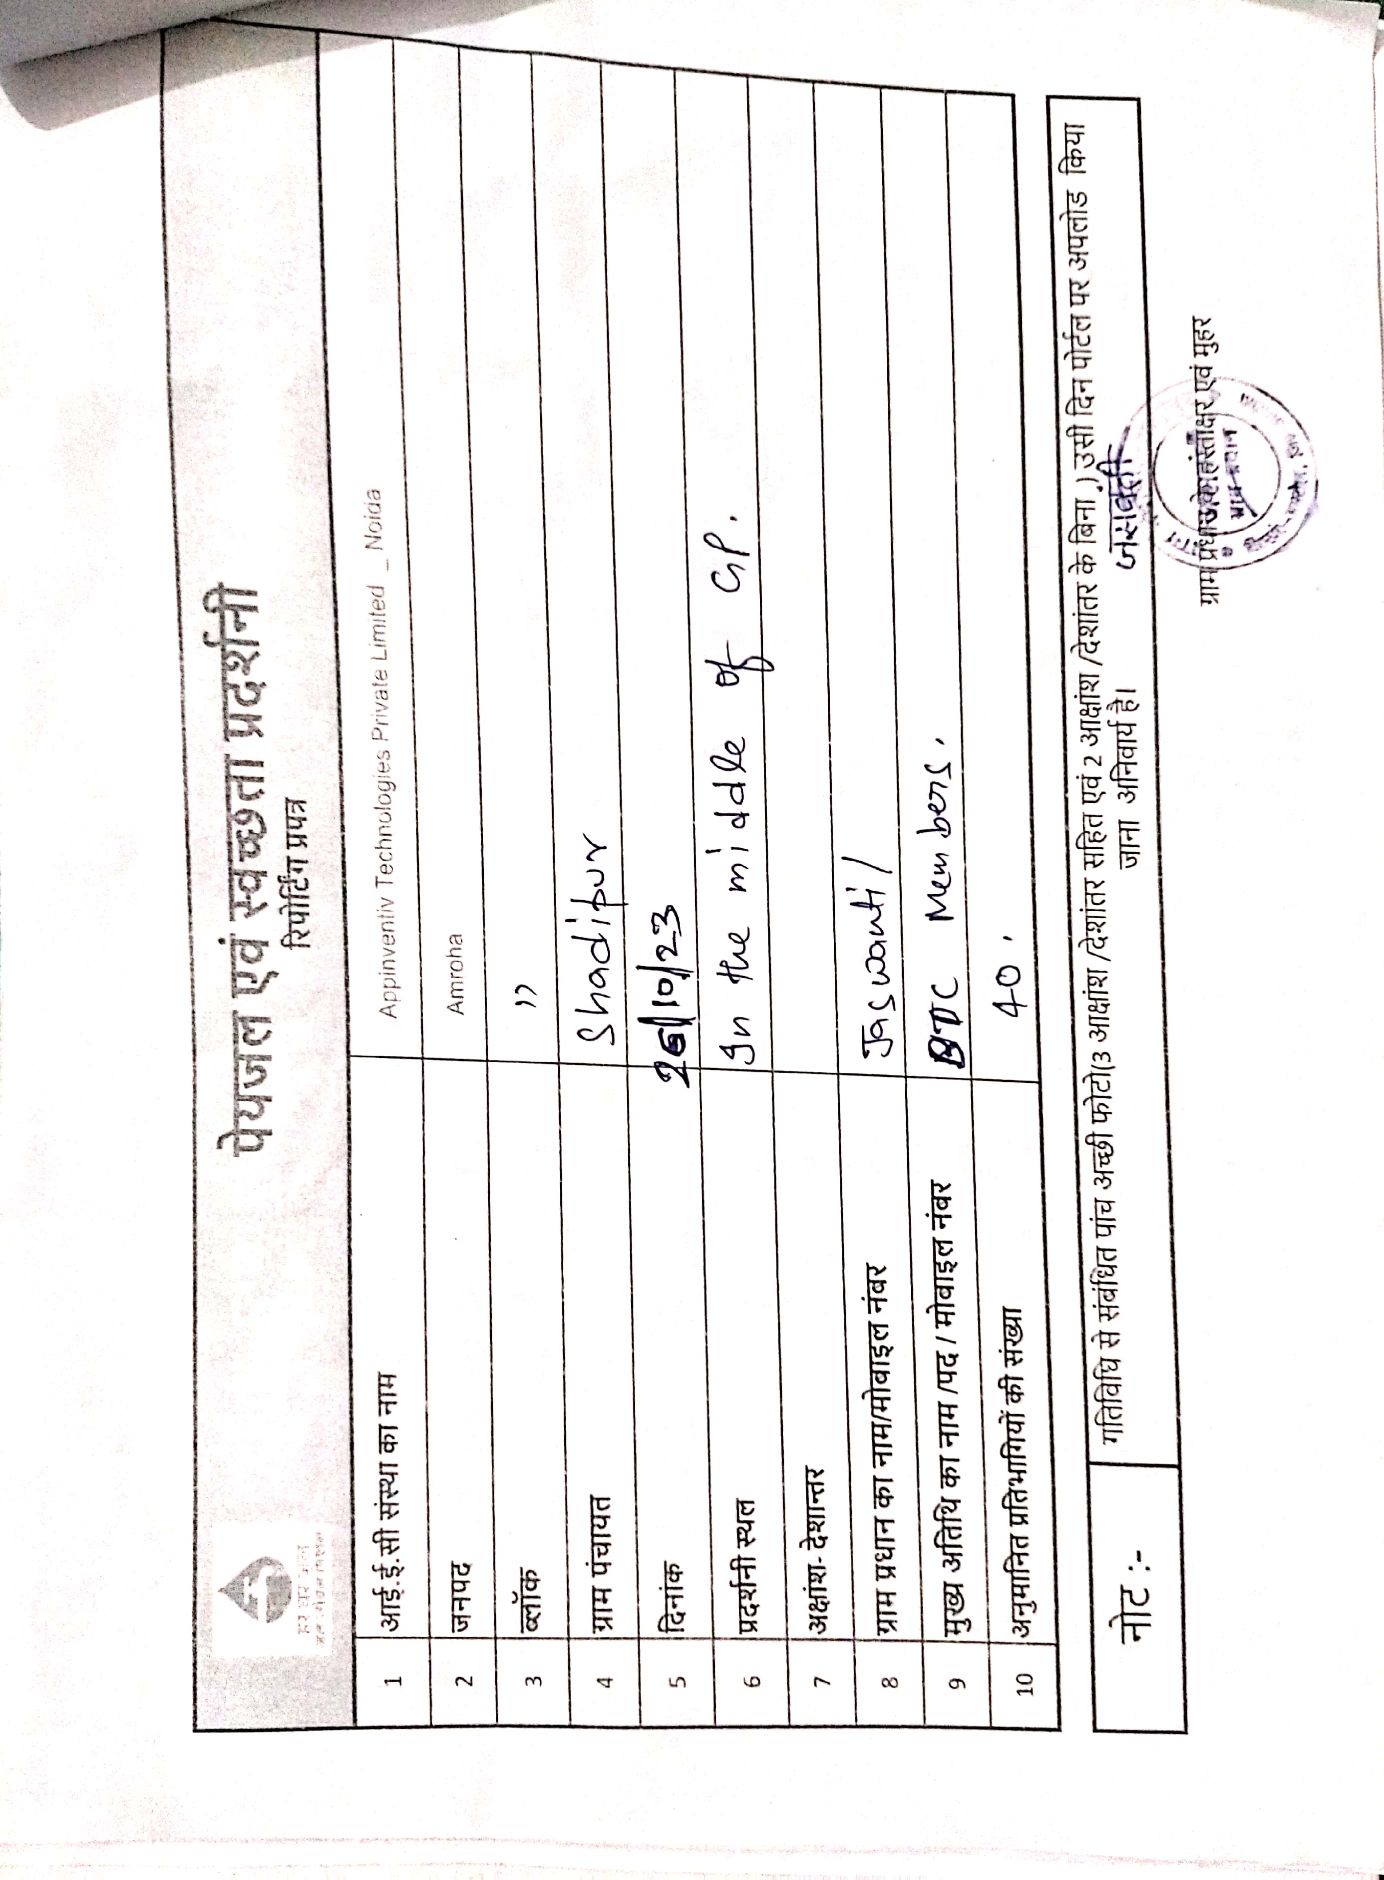 पेयजल एवं स्वच्छता प्रदर्शनी
रिपोर्टिंग प्रपत्र
हर घर जल
जल जीवन मिशन
1 आई.ई.सी संस्था का नाम Appinventiv Technologies Private Limited _ Noida
2 जनपद Amroha
3 ब्लॉक "
4 ग्राम पंचायत Shadipur
5 दिनांक 26/10/23
6 प्रदर्शनी स्थल In the middle of GP.
7 अक्षांश- देशान्तर
8 ग्राम प्रधान का नाम/मोबाइल नंबर Jaswanti/
9 मुख्य अतिथि का नाम /पद / मोबाइल नंबर Members.
10 अनुमानित प्रतिभागियों की संख्या 40.
नोट :- गतिविधि से संबंधित पांच अच्छी फोटो(3 आक्षांश /देशांतर सहित एवं 2 आक्षांश /देशांतर के बिना ) उसी दिन पोर्टल पर अपलोड किया
जाना अनिवार्य है।
जसवंती
ग्राम प्रधान के हस्ताक्षर एवं मुहर